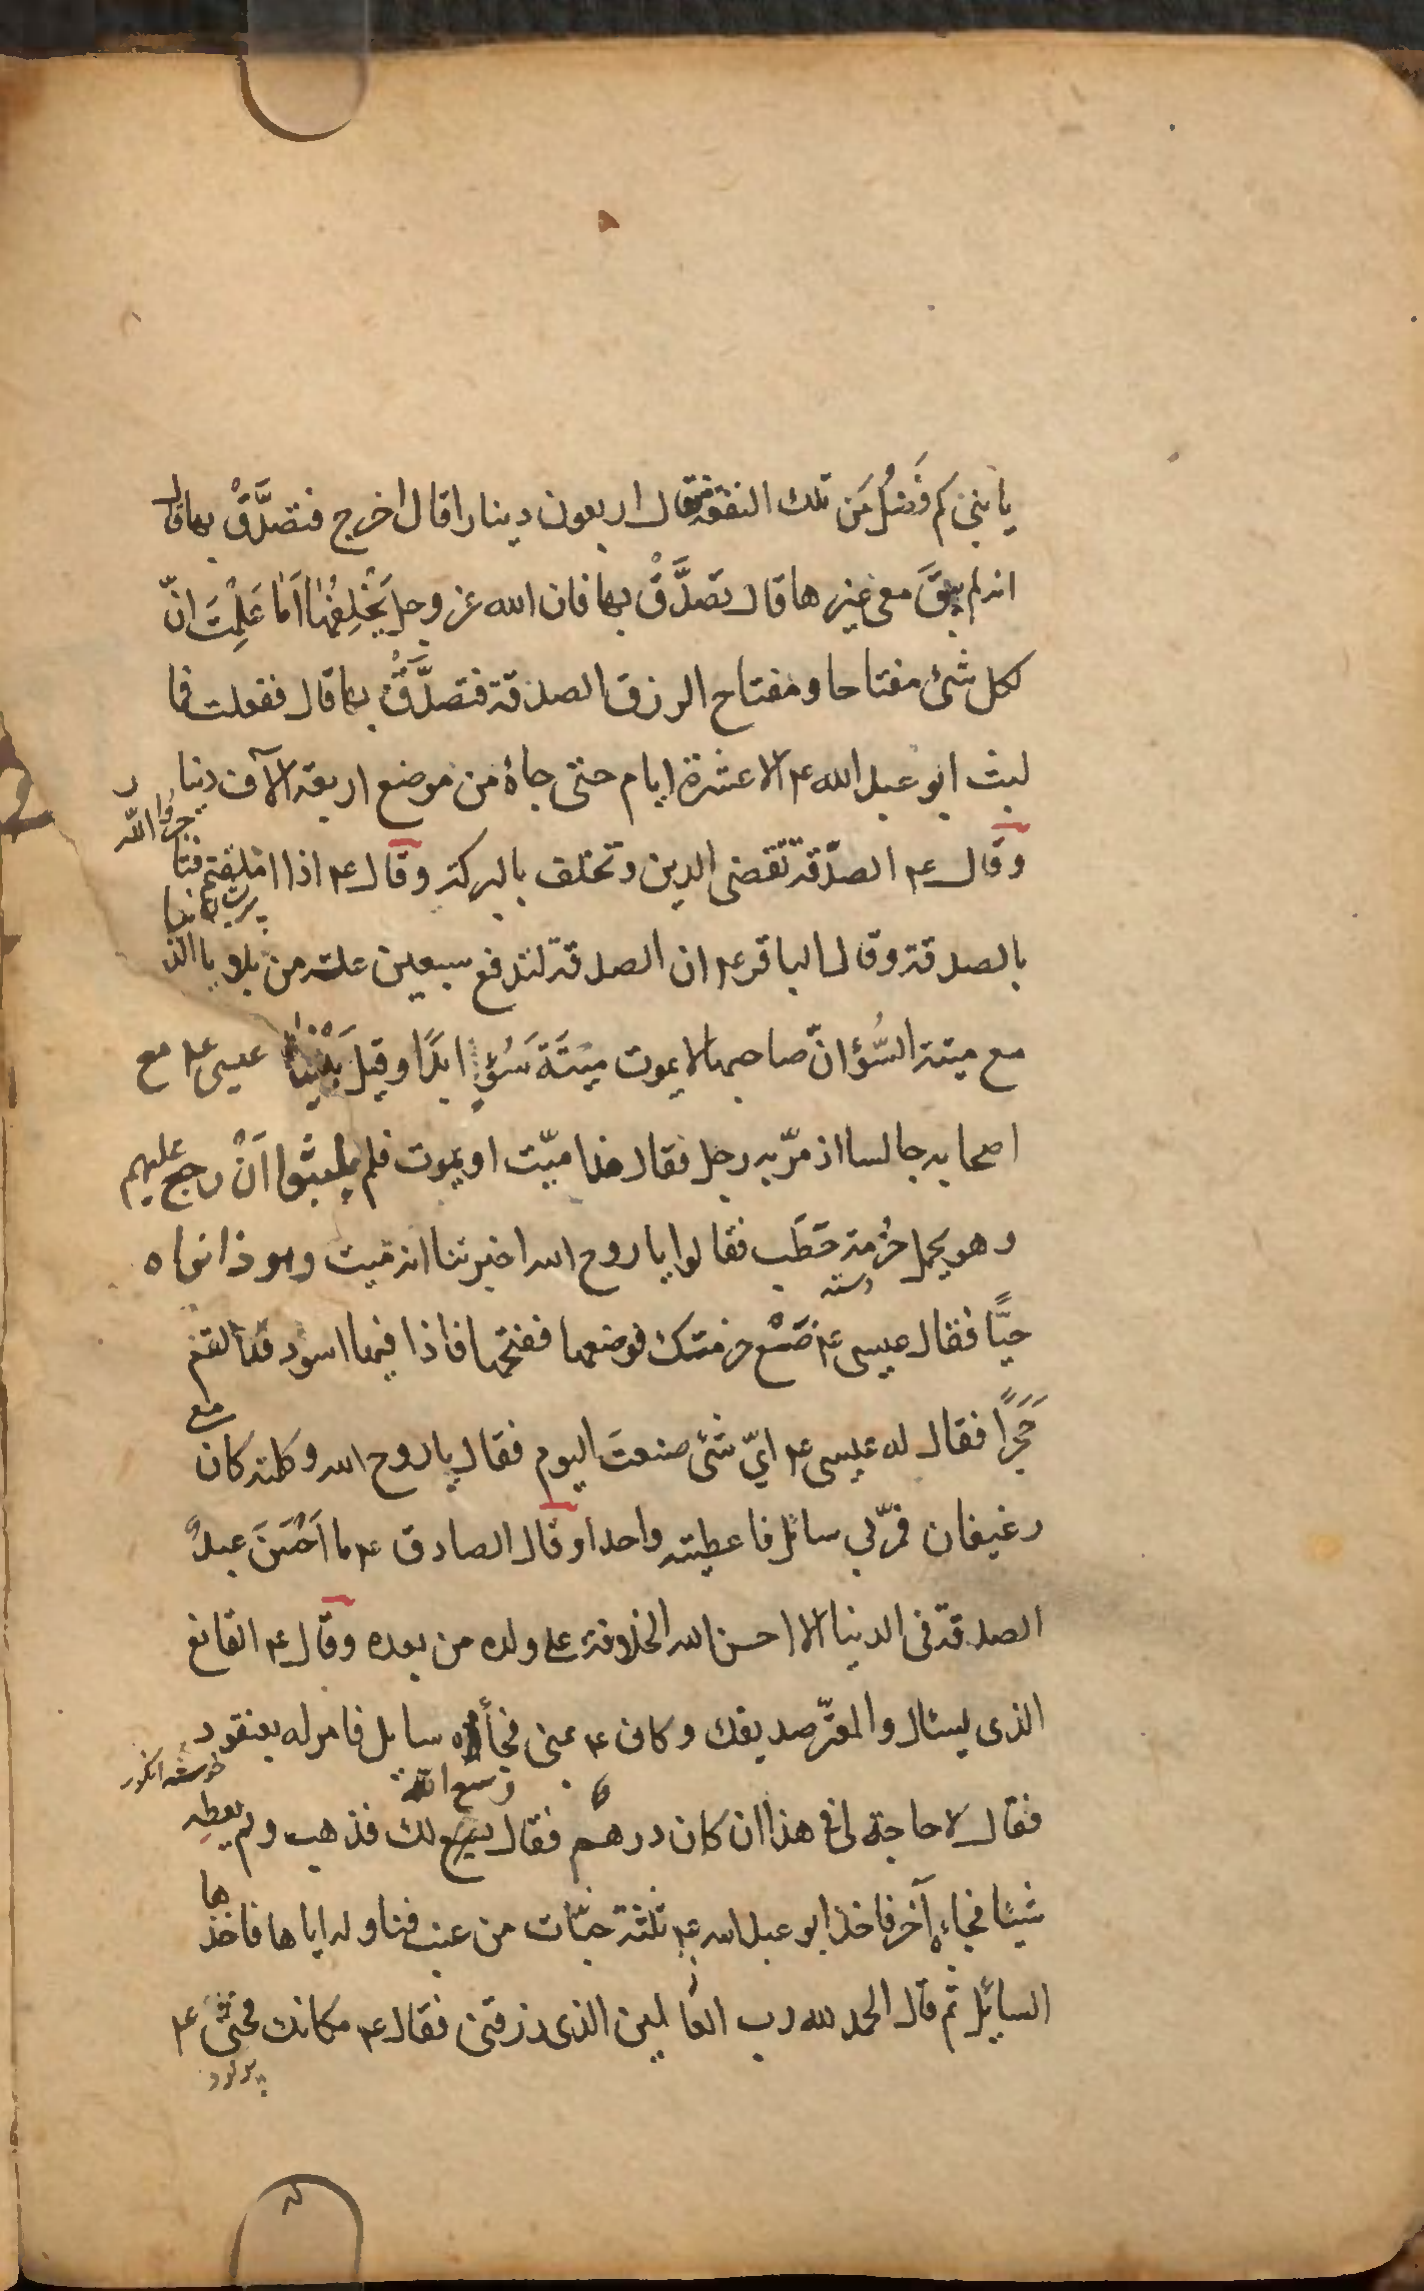 يا بنىّ كم فَضُلَ مَن تلك النفقة فقال اربعون دينارا قال اخرج فتصدَّقْ بها قال
انه لم يبقَ معى غيرها قال تصَدَّقْ بها فان الله عز وجل يُخْلِفُهٰا اَمٰا عَلِمْتَ انّ
لكل شئ مفتاحا ومفتاح الرزق الصدقة فتصدَّقْ بها قال ففعلت فما
لبث ابو عبد الله ع الا عشرة ايام حتى جاءه من موضع اربعة الآف دينار
وقال ع الصدّقة تقضى الدين وتخلف بالبركة وقال ع اذا املقتم فتاجروا الله
بالصدقة وقال الباقر ع ان الصدقة لتدفع سبعين علة من بلويا الدنيا
مع ميتة السُّؤ انّ صاحبها لا يموت ميتَةَ سَُؤٍ ابدًا وقيل بَيْنٰا عيسى ع مع
اصحابه جالسا اذ مرّ به رجل فقال هذا ميّت او يموت فلم يلبثوا اَنْ رجع عليهم
وهو يحمل حُزمة حَطَب فقالوا يا روح الله اخبرتنا انه ميت وهو ذا نراه
دسته
حيًّا فقال عيسى ع ضَعْ حزمتك فوضعها ففتحها فاذا فيها اسود قد القم
حَجَرًا فقال له عيسى ع ايّ شئ صنعتَ اليوم فقال يا روح الله وكلمته كان مع
رغيفان فمرّ بي سائل فاعطيته واحدا وقال الصادق ع ما اَحْسَنَ عبدٌ
الصدقة فى الدنيا الا احسن الله الخلافة على ولده من بعده وقال ع القانع
الذى يسئال والمعترّ صديقك وكان ع بمنى فجأه سايل فامر له بعنقود
خوشه انگور
فقال لا حاجة لى فى هذا ان كان درهم فقال يسع الله لك فذهب ولم يعطِه
شيئا فجاءه آخر فاخذ ابو عبد الله ع ثلثة حبّات من عنب فناوله اياها فاخذها
السايل ثم قال الحمد لله رب العالمين الذى رزقنى فقال ع مكانك فحثى ع